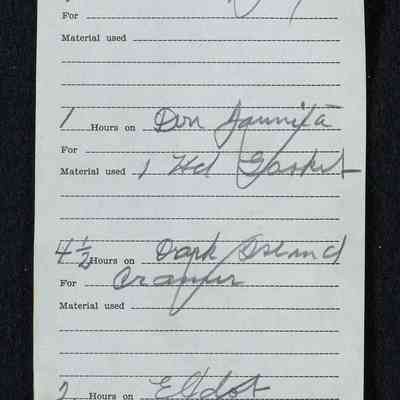 For
Material used
1 Hours on Don Jaunita
For
Material used 1 Hd Gasket
4 1/2 Hours on Dark Island
For Cramer
Material used
2 Hours on